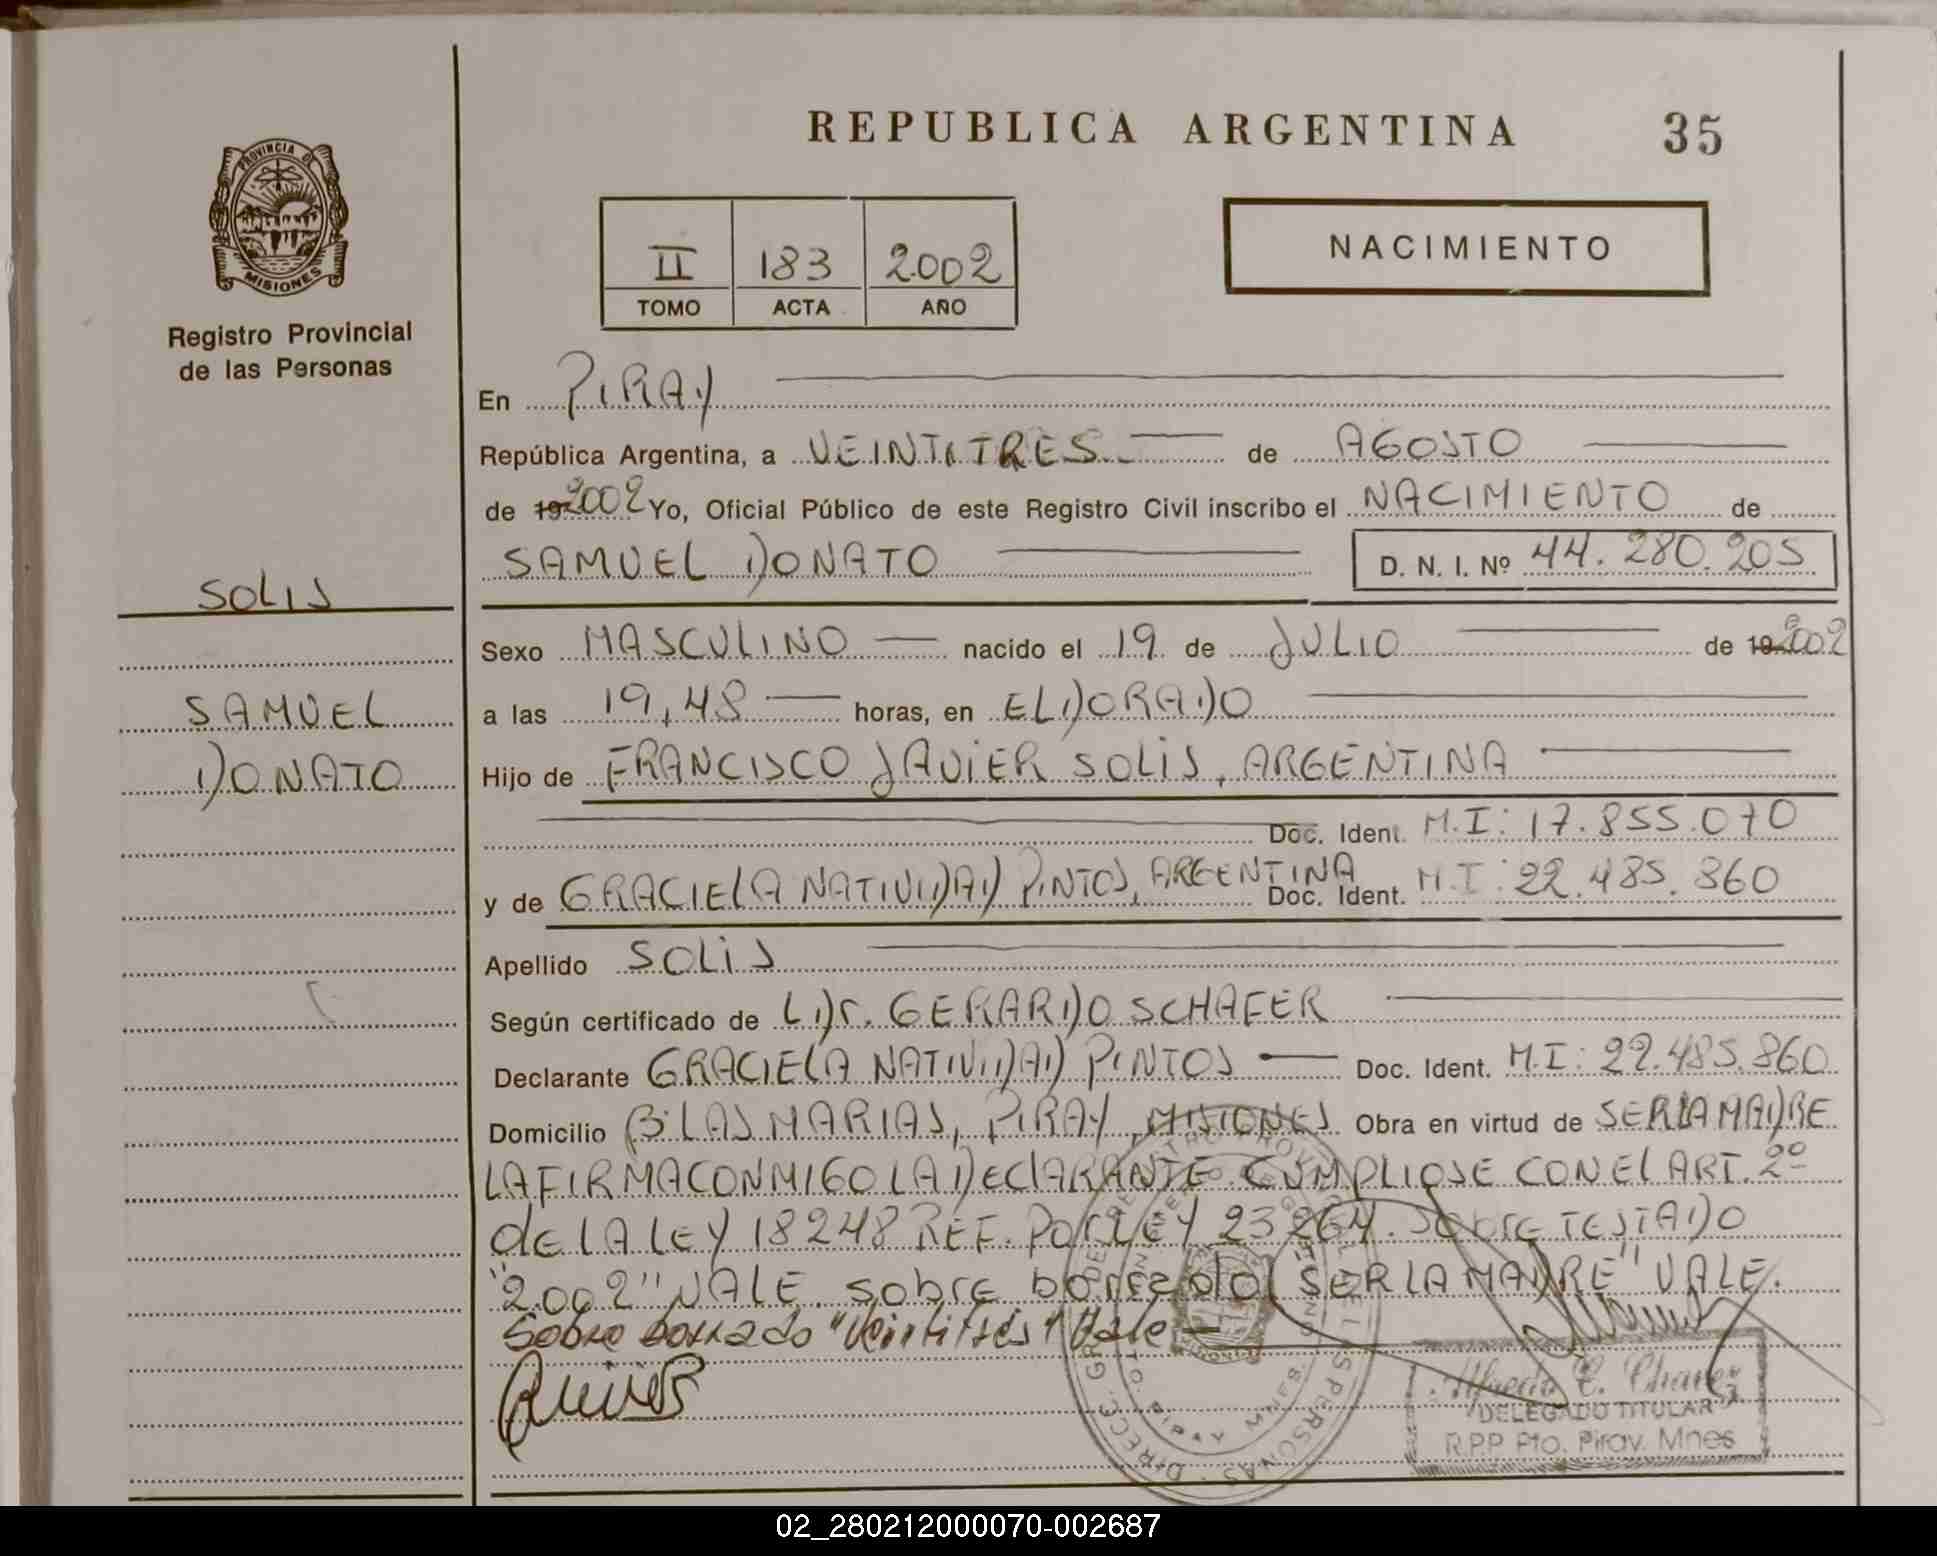 REPUBLICA ARGENTINA 35
PROVINCIA DE
MISIONES
Registro Provincial
de las Personas
II 183 2002
TOMO ACTA AÑO
NACIMIENTO
En PIRAY
República Argentina, a VEINTITRES de AGOSTO
de 19 2002 Yo, Oficial Público de este Registro Civil inscribo el NACIMIENTO de
SAMUEL DONATO D. N. I. Nº 44.280.205
SOLIS
SAMUEL
DONATO
Sexo MASCULINO nacido el 19 de JULIO de 19 2002
a las 19,48 horas, en ELDORADO
Hijo de FRANCISCO JAVIER SOLIS, ARGENTINA
Doc. Ident. M.I: 17.855.070
y de GRACIELA NATIVIDAD PINTOS, ARGENTINA Doc. Ident. M.I: 22.485.860
Apellido SOLIS
Según certificado de L Dr. GERARDO SCHAFER
Declarante GRACIELA NATIVIDAD PINTOS Doc. Ident. M.I: 22.485.860
Domicilio Bº LAS MARIAS, PIRAY, MISIONES Obra en virtud de SER LA MADRE
LA FIRMA CONMIGO LA DECLARANTE. CUMPLIOSE CON EL ART. 2º
de LA LEY 18248 REF. POR LEY 23264. SOBRE TESTADO
"2.002" VALE. sobre borrado "SER LA MADRE" VALE.
Sobre borrado "Veintitrés" Vale
Alfredo C. Chavez
DELEGADO TITULAR
R.P.P Pto. Piray. Mnes
02_280212000070-002687